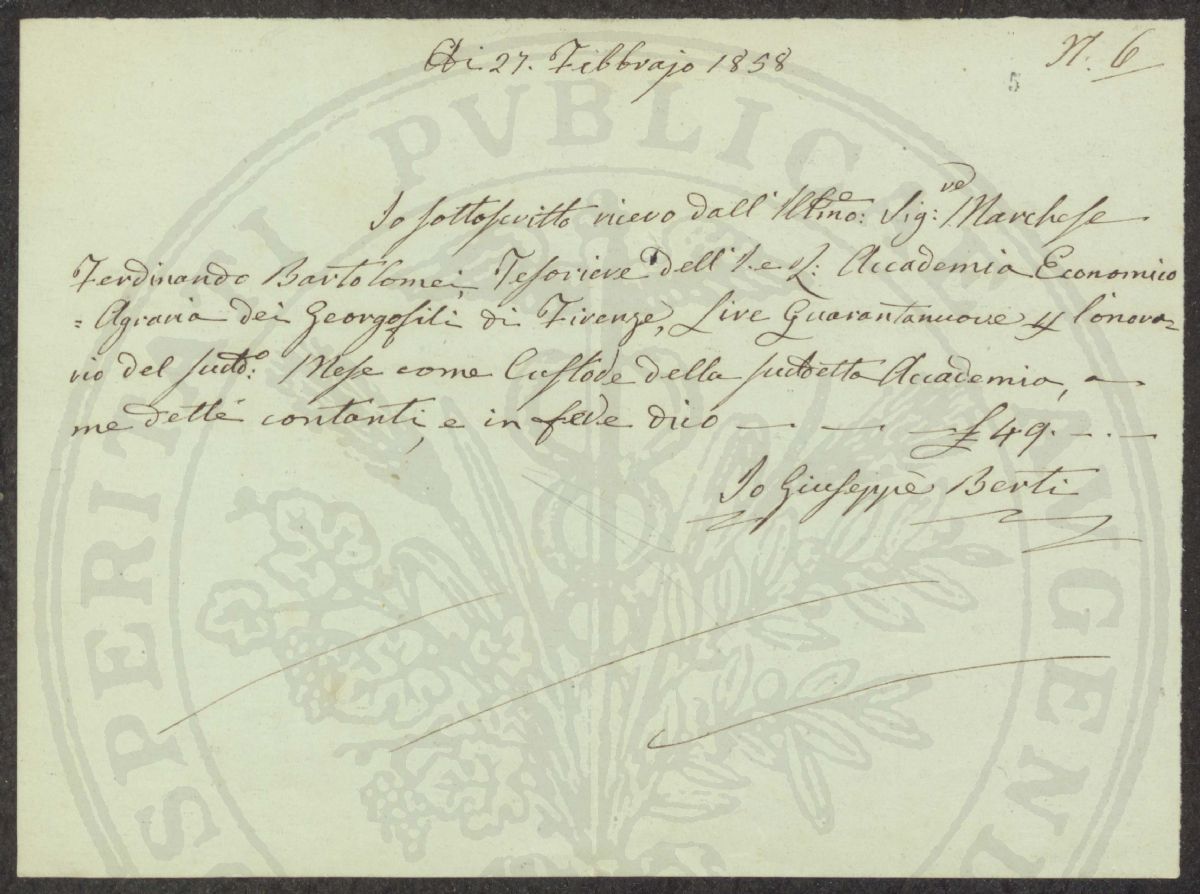 Adi 27. Febbrajo 1858
N. 6
5
Io sottoscritto ricevo dall' Illmo: Sig:re Marchese
Ferdinando Bartolomei, Tesoriere dell' I. e R: Accademia Economico
= Agraria dei Georgofili di Firenze, Lire Quarantanuove p l'onora=
rio del sudto: Mese come Custode della sudetta Accademia, a
me dette contanti, e in fede dico — — — £ 49. — . —
Io Giuseppe Berti
PROSPERITATI PVBLICAE AVGENDAE